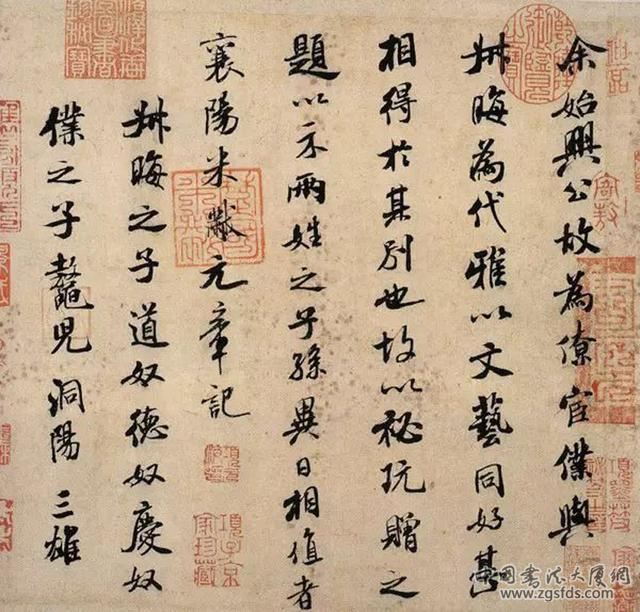 余始興公故為僚宦僕與
叔晦為代雅以文藝同好甚
相得於其別也故以秘玩贈之
題以示兩姓之子孫異日相值者
襄陽米黻元章記
叔晦之子道奴德奴慶奴
僕之子鼇兒洞陽三雄
項子京
家珍藏
中国书法大厦网
www.zgsfds.com